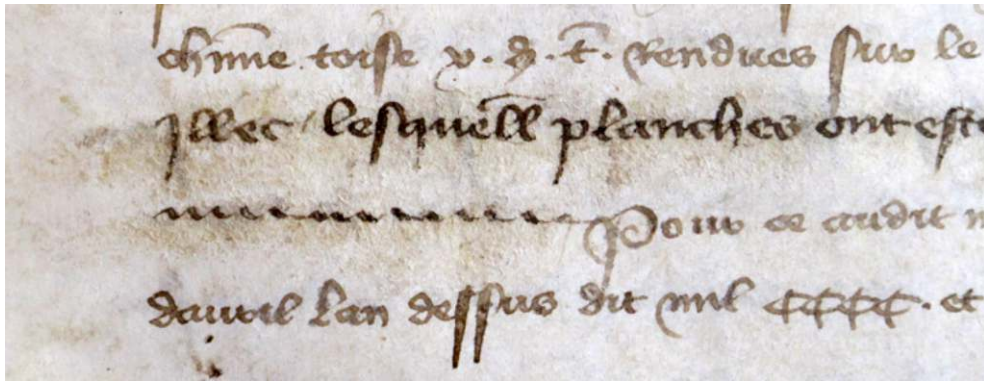 chũne toise v. d. t. Rendues sur le
Illec lesquell planches ont este
Pour ce audit
davril lan dessus dit mil cccc. et